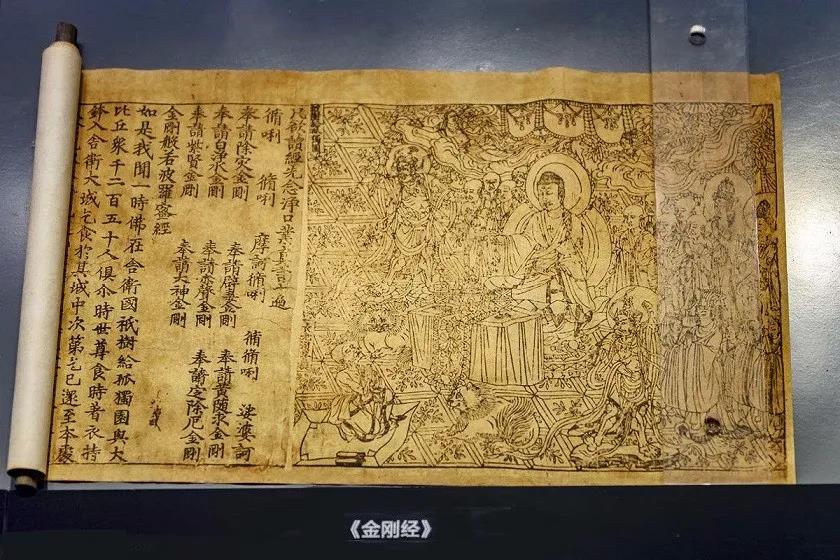 凡欲讀經先念淨口業真言一遍
脩唎 脩唎 摩訶脩唎 脩脩唎 娑婆訶
奉請除灾金剛 奉請辟毒金剛 奉請黃隨求金剛
奉請白淨水金剛 奉請赤聲金剛 奉請定除厄金剛
奉請紫賢金剛 奉請大神金剛
金剛般若波羅蜜經
如是我聞一時佛在舍衛國祇樹給孤獨園與大
比丘衆千二百五十人俱尒時世尊食時著衣持
鉢入舍衛大城乞食於其城中次第乞已還至本處
《金刚经》